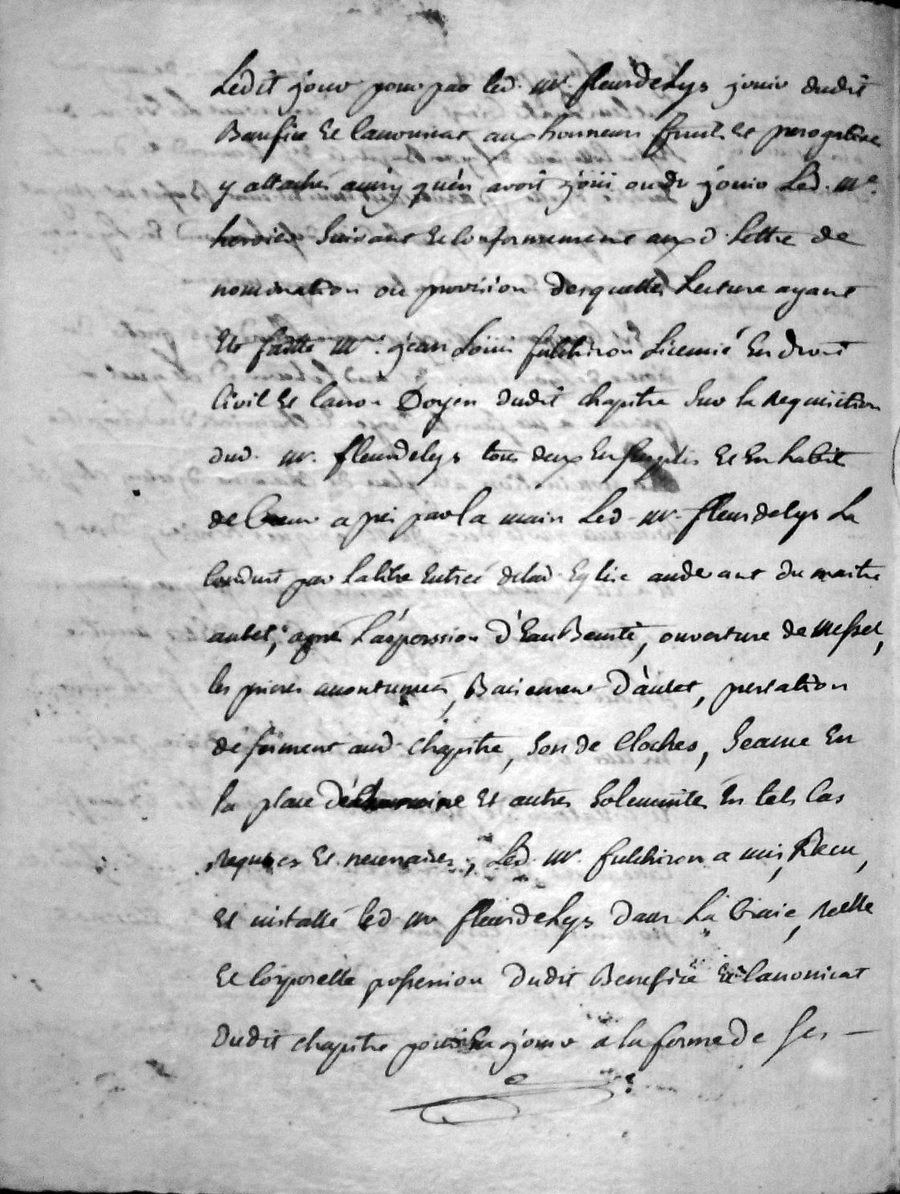 Ledit jour pour par led. mr. fleurdelys jouir dudit
Benefice et canonicat aux honneurs ffruits et perogative
y attachés ainsy qu'en avoit joüi ou dû jouir Led. mr.
suivant et conformement aux d. Lettre de
nomination ou provision desquelles Lecture ayant
Ete faitte mr. jean Loüis fulchiron Licencié en droit
Civil et canon Doyen dudit chapitre sur la Requisition
dud. mr. fleurdelys tous deux en surplis et en habit
de Coeur a pris par la main Led. mr. fleurdelys La
conduit par La libre entreé delad. Eglise audevant du maitre
autel, aprè L'aspersion d'Eau Benite, ouverture de Messel,
les prieres accoutumeés, Baisement D'autel, prestation
de serment aud. chapitre, son de Cloches, seance En
la place de chanoine et autres solemnités En tels Cas
Requises et necessaires, Led. mr. fulchiron a mis, Recu,
et installé led. mr. fleurdeLys dans La vraie, Reelle
et Corporelle possession dudit Benefice et Canonicat
dudit chapitre pour en jouir a la forme de ses —